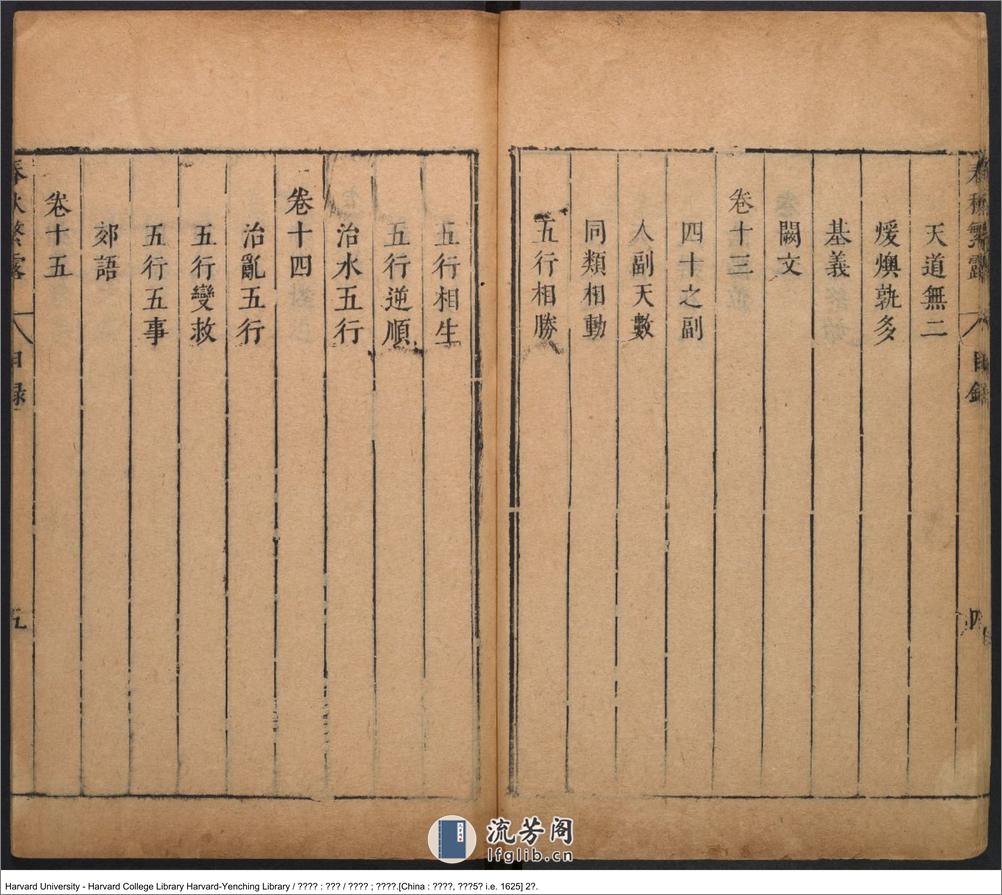 天道無二
煖燠孰多
基義
闕文
卷十三
四十之副
人副天數
同類相動
五行相勝
五行相生
五行逆順
治水五行
卷十四
治亂五行
五行變救
五行五事
郊語
卷十五
春秋繁露 目録
五
流芳阁
lfglib.cn
Harvard University - Harvard College Library Harvard-Yenching Library / ???? : ??? / ???? ; ????.[China : ????, ???5? i.e. 1625] 2?.